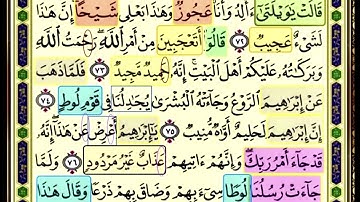 قَالَتْ يَٰوَيْلَتَىٰٓ ءَأَلِدُ وَأَنَا۠ عَجُوزٌ وَهَٰذَا بَعْلِى شَيْخًا ۖ إِنَّ هَٰذَا
لَشَىْءٌ عَجِيبٌ ٧٢ قَالُوٓا۟ أَتَعْجَبِينَ مِنْ أَمْرِ ٱللَّهِ ۖ رَحْمَتُ ٱللَّهِ
وَبَرَكَٰتُهُۥ عَلَيْكُمْ أَهْلَ ٱلْبَيْتِ ۚ إِنَّهُۥ حَمِيدٌ مَّجِيدٌ ٧٣ فَلَمَّا ذَهَبَ
عَنْ إِبْرَٰهِيمَ ٱلرَّوْعُ وَجَآءَتْهُ ٱلْبُشْرَىٰ يُجَٰدِلُنَا فِى قَوْمِ لُوطٍ ٧٤
إِنَّ إِبْرَٰهِيمَ لَحَلِيمٌ أَوَّٰهٌ مُّنِيبٌ ٧٥ يَٰٓإِبْرَٰهِيمُ أَعْرِضْ عَنْ هَٰذَآ ۖ إِنَّهُۥ
قَدْ جَآءَ أَمْرُ رَبِّكَ ۖ وَإِنَّهُمْ ءَاتِيهِمْ عَذَابٌ غَيْرُ مَرْدُودٍ ٧٦ وَلَمَّا
جَآءَتْ رُسُلُنَا لُوطًا سِىٓءَ بِهِمْ وَضَاقَ بِهِمْ ذَرْعًا وَقَالَ هَٰذَا